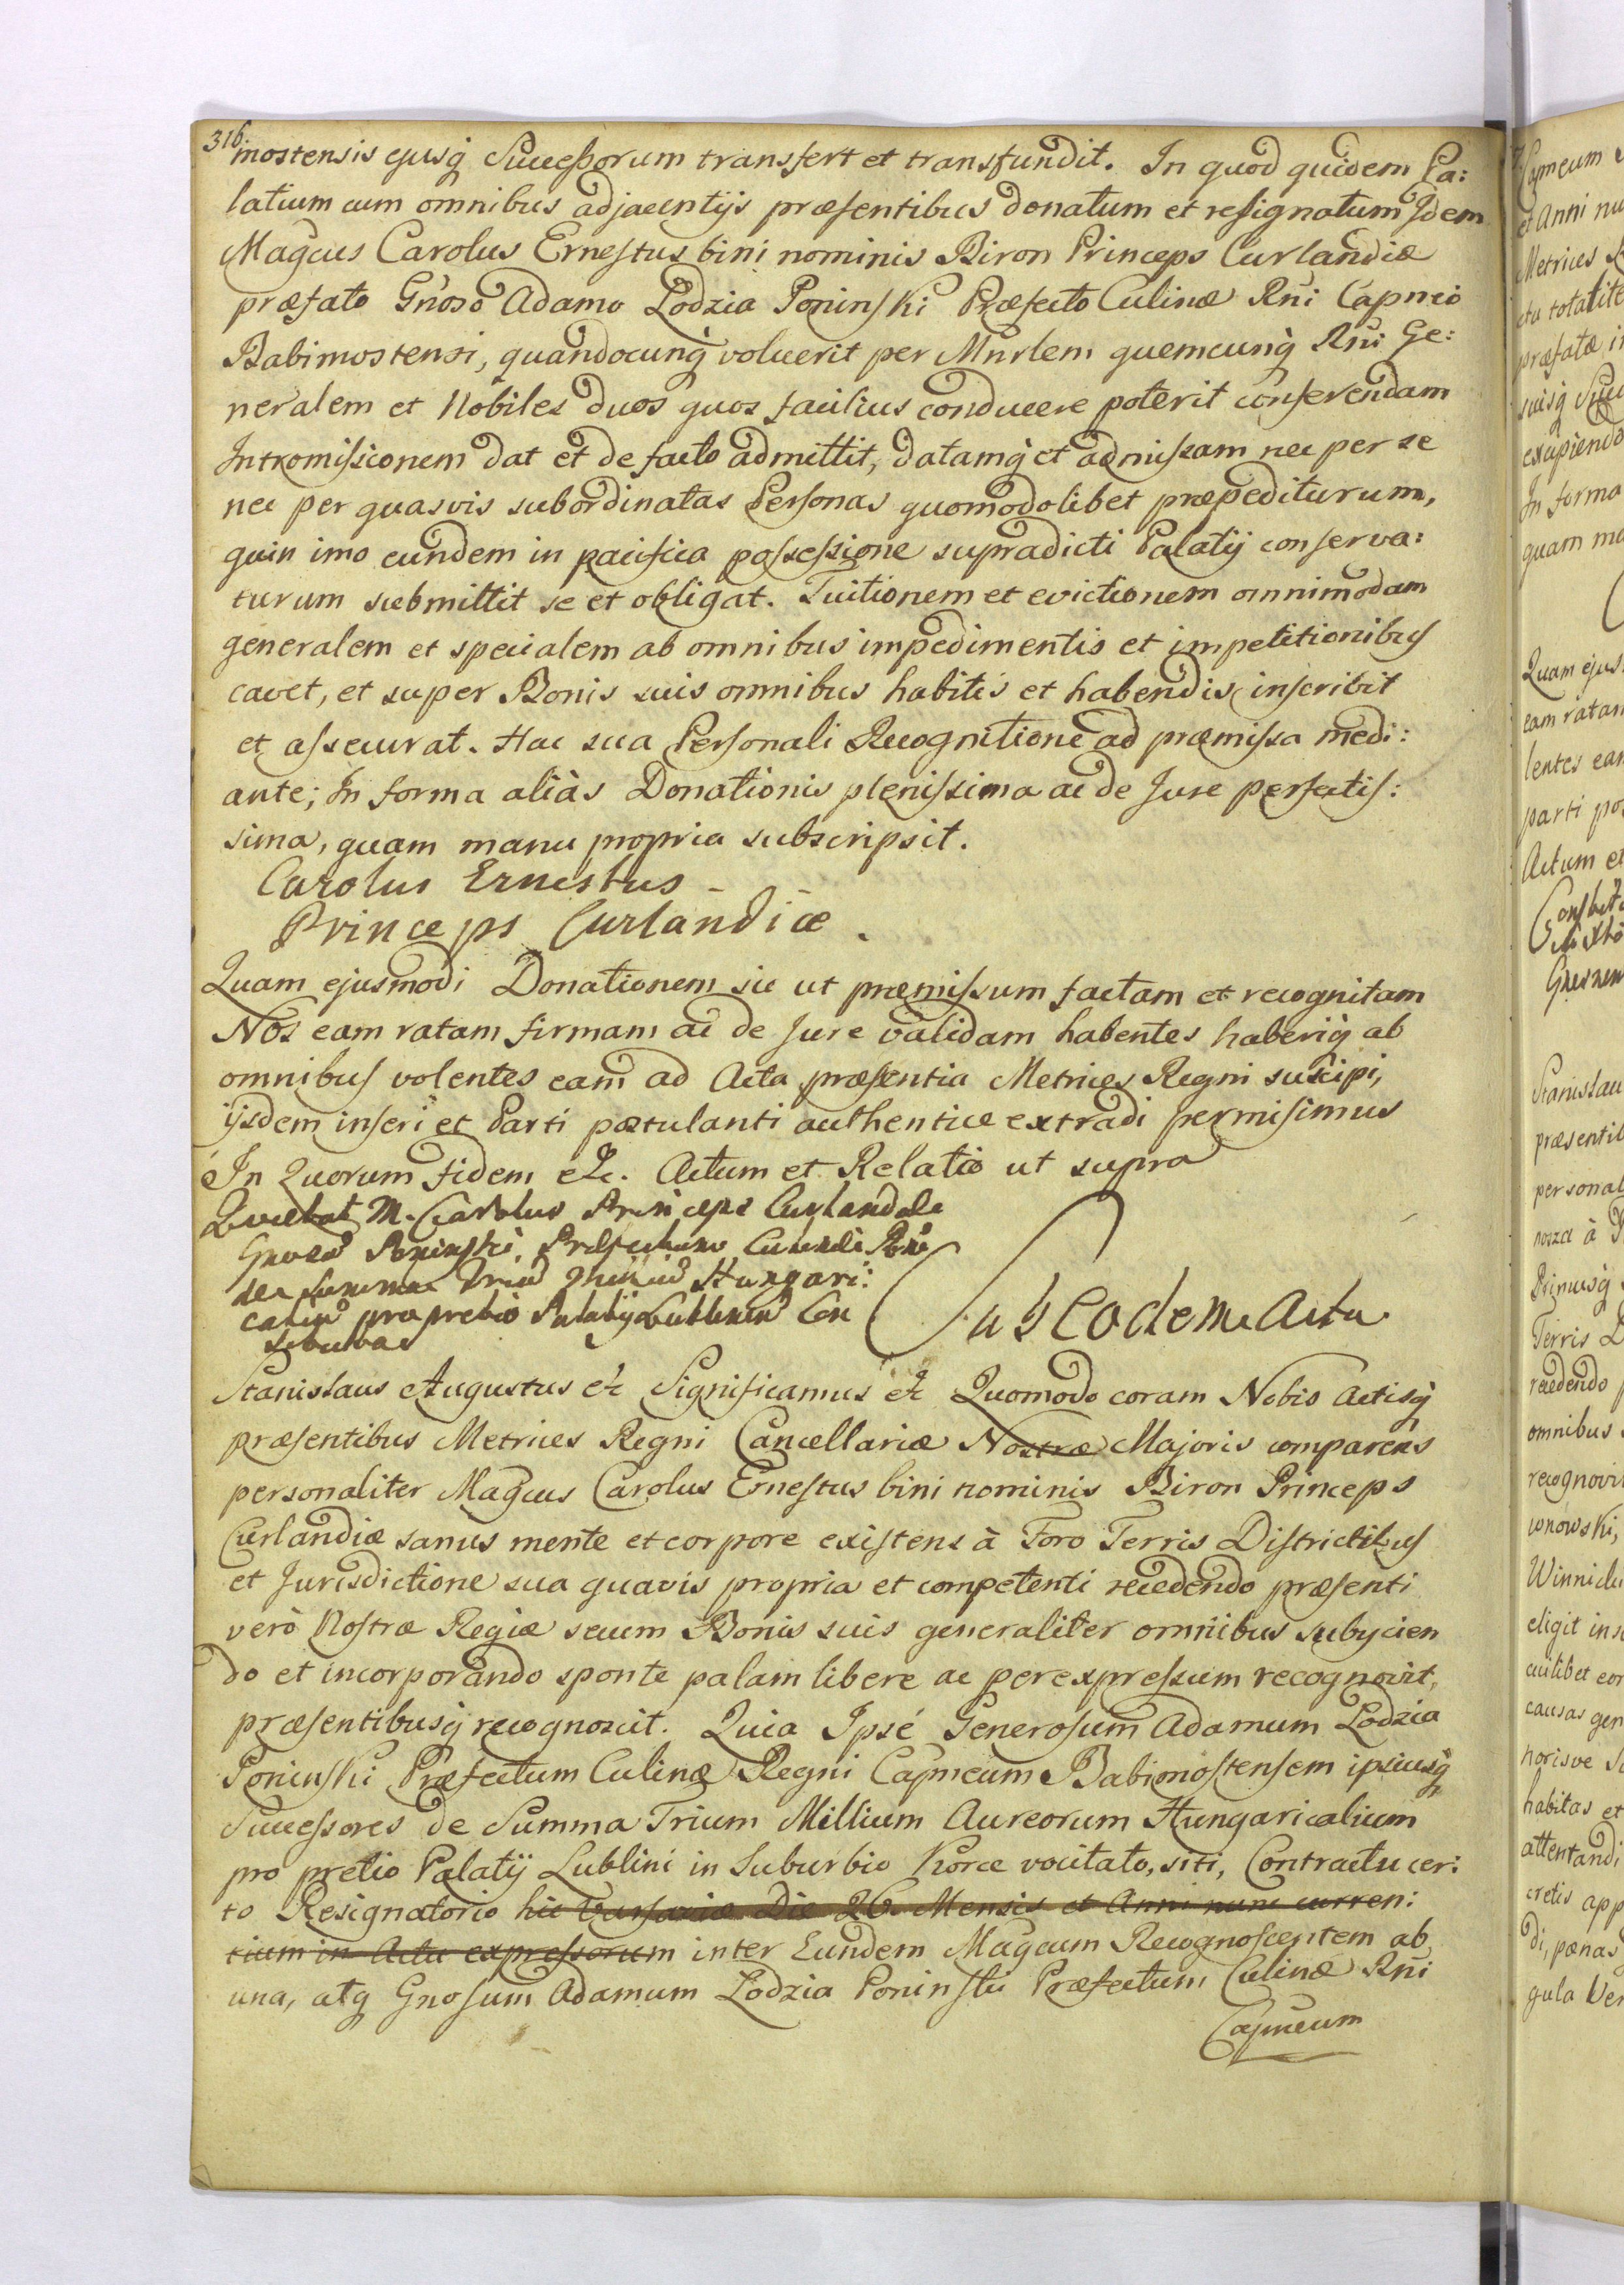 316.
mostensis ejusq Successorum transfert et transfundit. In quod quidem Pa:
latium cum omnibus adjacentijs præsentibus donatum et resignatum Idem
Magcus Carolus Ernestus bini nominis Biron Princeps Curlandiæ
præfato Gnoso Adamo Lodzia Poninski Præfecto Culinæ Rni Capneo
Babimostensi, quandocunq voluerit per Mnrlem quemcunq Rni Ge:
neralem et Nobiles duos quos facilius conducere poterit conferendam
Intromissionem dat et de facto admittit, datamq et admissam nec per se
nec per quasvis subordinatas Personas quomodolibet præpediturum,
quin imo eundem in pacifica possessione supradicti Palatij conserva:
turum submittit se et obligat. Tuitionem et evictionem omnimodam
generalem et specialem ab omnibus impedimentis et impetitionibus
cavet, et super Bonis suis omnibus habitis et habendis inscribit
et assecurat. Hac sua Personali Recognitione ad præmissa medi:
ante; In forma aliàs Donationis plenissima ac de Jure perfectis:
sima, quam manu propria subscripsit.
Carolus Ernestus
Princeps Curlandiæ.
Quam ejusmodi Donationem sic ut præmissum factam et recognitam
Nos eam ratam firmam ac de Jure validam habentes haberiq ab
omnibus volentes eam ad Acta præsentia Metrices Regni suscipi,
ijsdem inseri et Parti postulanti authentice extradi permisimus
In Quorum fidem etc. Actum et Relatio ut supra
Quietat M. Carolus Princeps Curlandiæ
Gnosu Poninski, Præfectum Culinæ Rni
de Summa Trium Millium Hungari:
caliu pro pretio Palatij Lublinen
Suburba
Sub eodem Actu
Stanislaus Augustus etc Significamus etc Quomodo coram Nobis Actisq
præsentibus Metrices Regni Cancellariæ Nostræ Majoris comparens
personaliter Magcus Carolus Ernestus bini nominis Biron Princeps
Curlandiæ sanus mente et corpore existens à Foro Terris Districtibus
et Jurisdictione sua quavis propria et competenti recedendo præsenti
verò Nostræ Regiæ secum Bonis suis generaliter omnibus subycien
do et incorporando sponte palam libere ac per expressum recognovit,
præsentibusq recognoscit. Quia Ipse Generosum Adamum Lodzia
Poninski Præfectum Culinæ Regni Capneum Babimostensem ipsiusq
Successores de Summa Trium Millium Aureorum Hungaricalium
pro pretio Palatij Lublini in Suburbio Korce vocitato, siti, Contractu cer:
to Resignatorio hic Varsaviæ Die 26. Mensis et Anni nunc curren:
tium in Actu expressorum inter Eundem Magcum Recognoscentem ab
una, atq Gnosum Adamum Lodzia Poninski Præfectum Culinæ Rni
Capneum